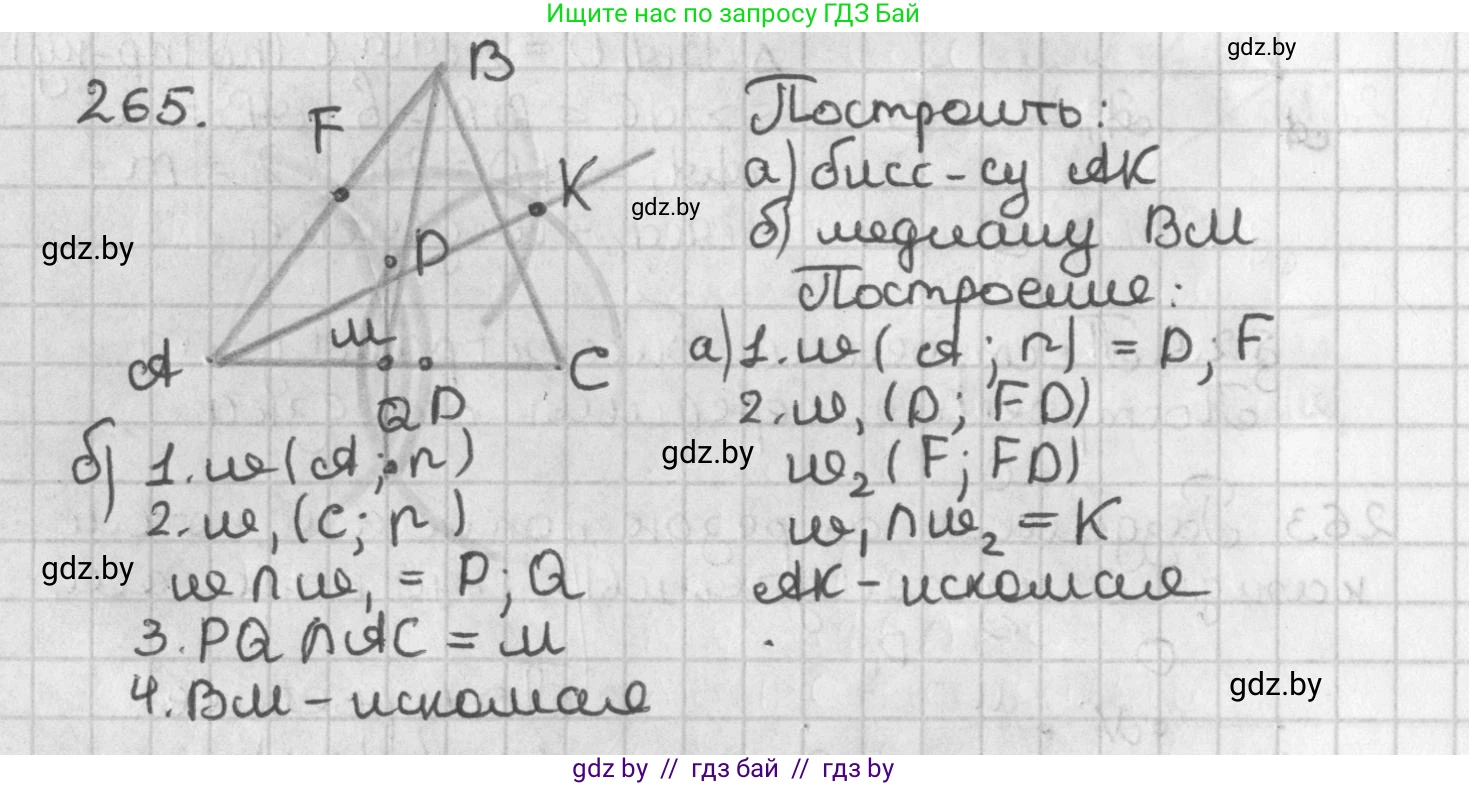 Ищите нас по запросу ГДЗ Бай
gdz.by
265.
B
F
K
gdz.by
gdz.by
D
M
A
C
Q D
Построить:
а) бисс-су AK
б) медиану BM
Построение:
а) 1. ω(A; r) = D; F
2. ω₁(D; FD)
ω₂(F; FD)
ω₁∩ω₂ = K
AK - искомая
gdz.by
б) 1. ω(A; r)
2. ω₁(C; r)
gdz.by
ω∩ω₁ = P; Q
3. PQ∩AC = M
4. BM - искомая
gdz.by
gdz by // гдз бай // гдз by